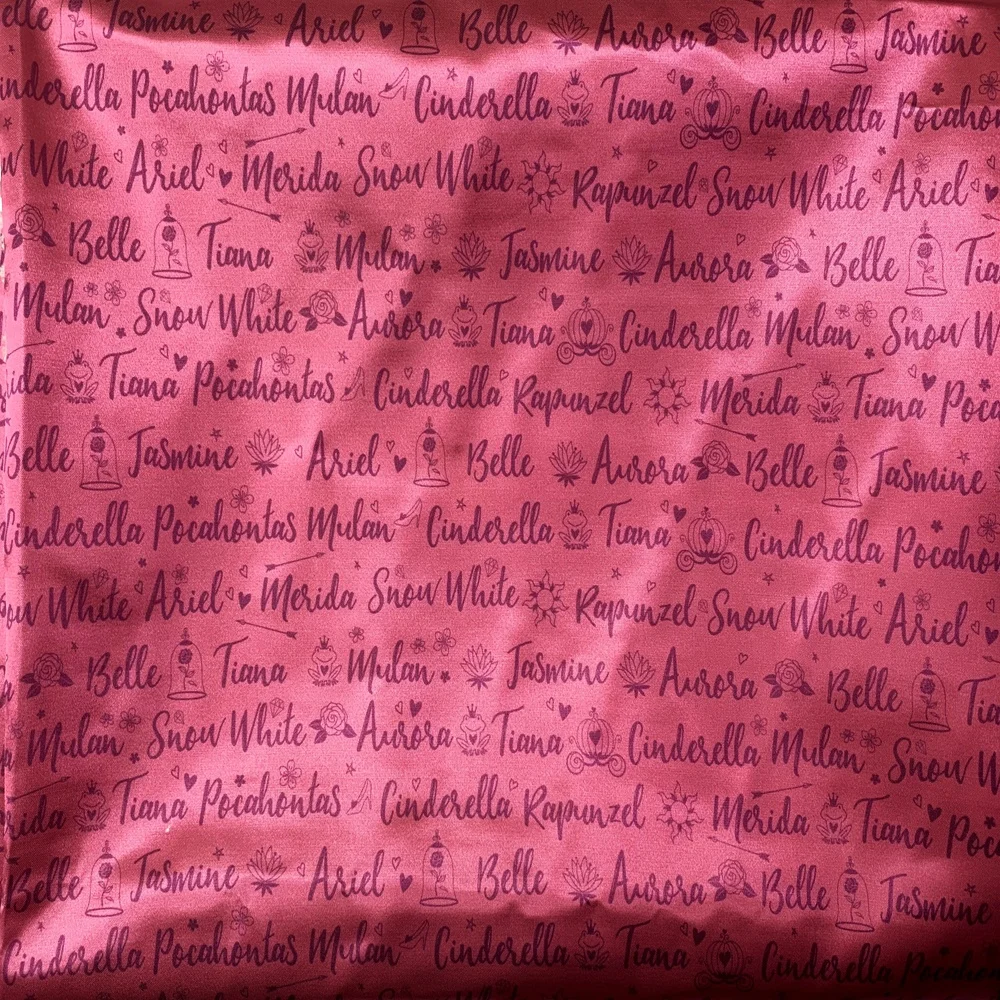 elle Jasmine Ariel Belle Aurora Belle Jasmine
inderella Pocahontas Mulan Cinderella Tiana Cinderella Pocahon
w White Ariel Merida Snow White Rapunzel Snow White Ariel
Belle Tiana Mulan Jasmine Aurora Belle Tia
Mulan Snow White Aurora Tiana Cinderella Mulan Snow W
ida Tiana Pocahontas Cinderella Rapunzel Merida Tiana Poca
Belle Jasmine Ariel Belle Aurora Belle Jasmine
Cinderella Pocahontas Mulan Cinderella Tiana Cinderella Pocahon
ow White Ariel Merida Snow White Rapunzel Snow White Ariel
Belle Tiana Mulan Jasmine Aurora Belle Tia
Mulan Snow White Aurora Tiana Cinderella Mulan Snow W
rida Tiana Pocahontas Cinderella Rapunzel Merida Tiana Poc
Belle Jasmine Ariel Belle Aurora Belle Jasmine
Cinderella Pocahontas Mulan Cinderella Tiana Cinderella Pocahon